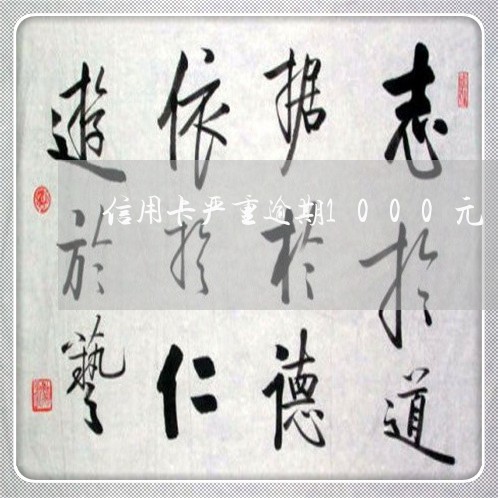 志於道
据於德
依於仁
遊於藝
信用卡严重逾期1000元